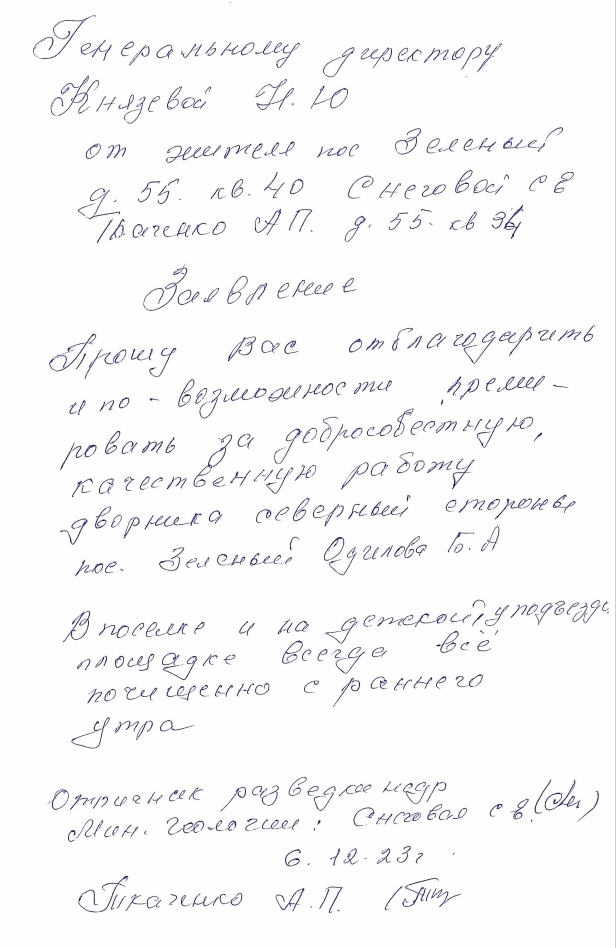 Генеральному директору
Князевой Н. Ю
от жителя пос Зеленый
д. 55. кв. 40 Снеговой С В
Ткаченко А П. д. 55. кв 34
Заявление
Прошу Вас отблагодарить
и по - возможности преми-
ровать за добросовестную,
качественную работу
дворника северный стороны
пос. Зеленый Одилова Б. А
В поселке и на детской, у подъезда
площадке всегда всё
почищенно с раннего
утра
Отличник разведки недр
Мин. Геологии: Снеговая С В.
6. 12. 23 г
Ткаченко А. П.